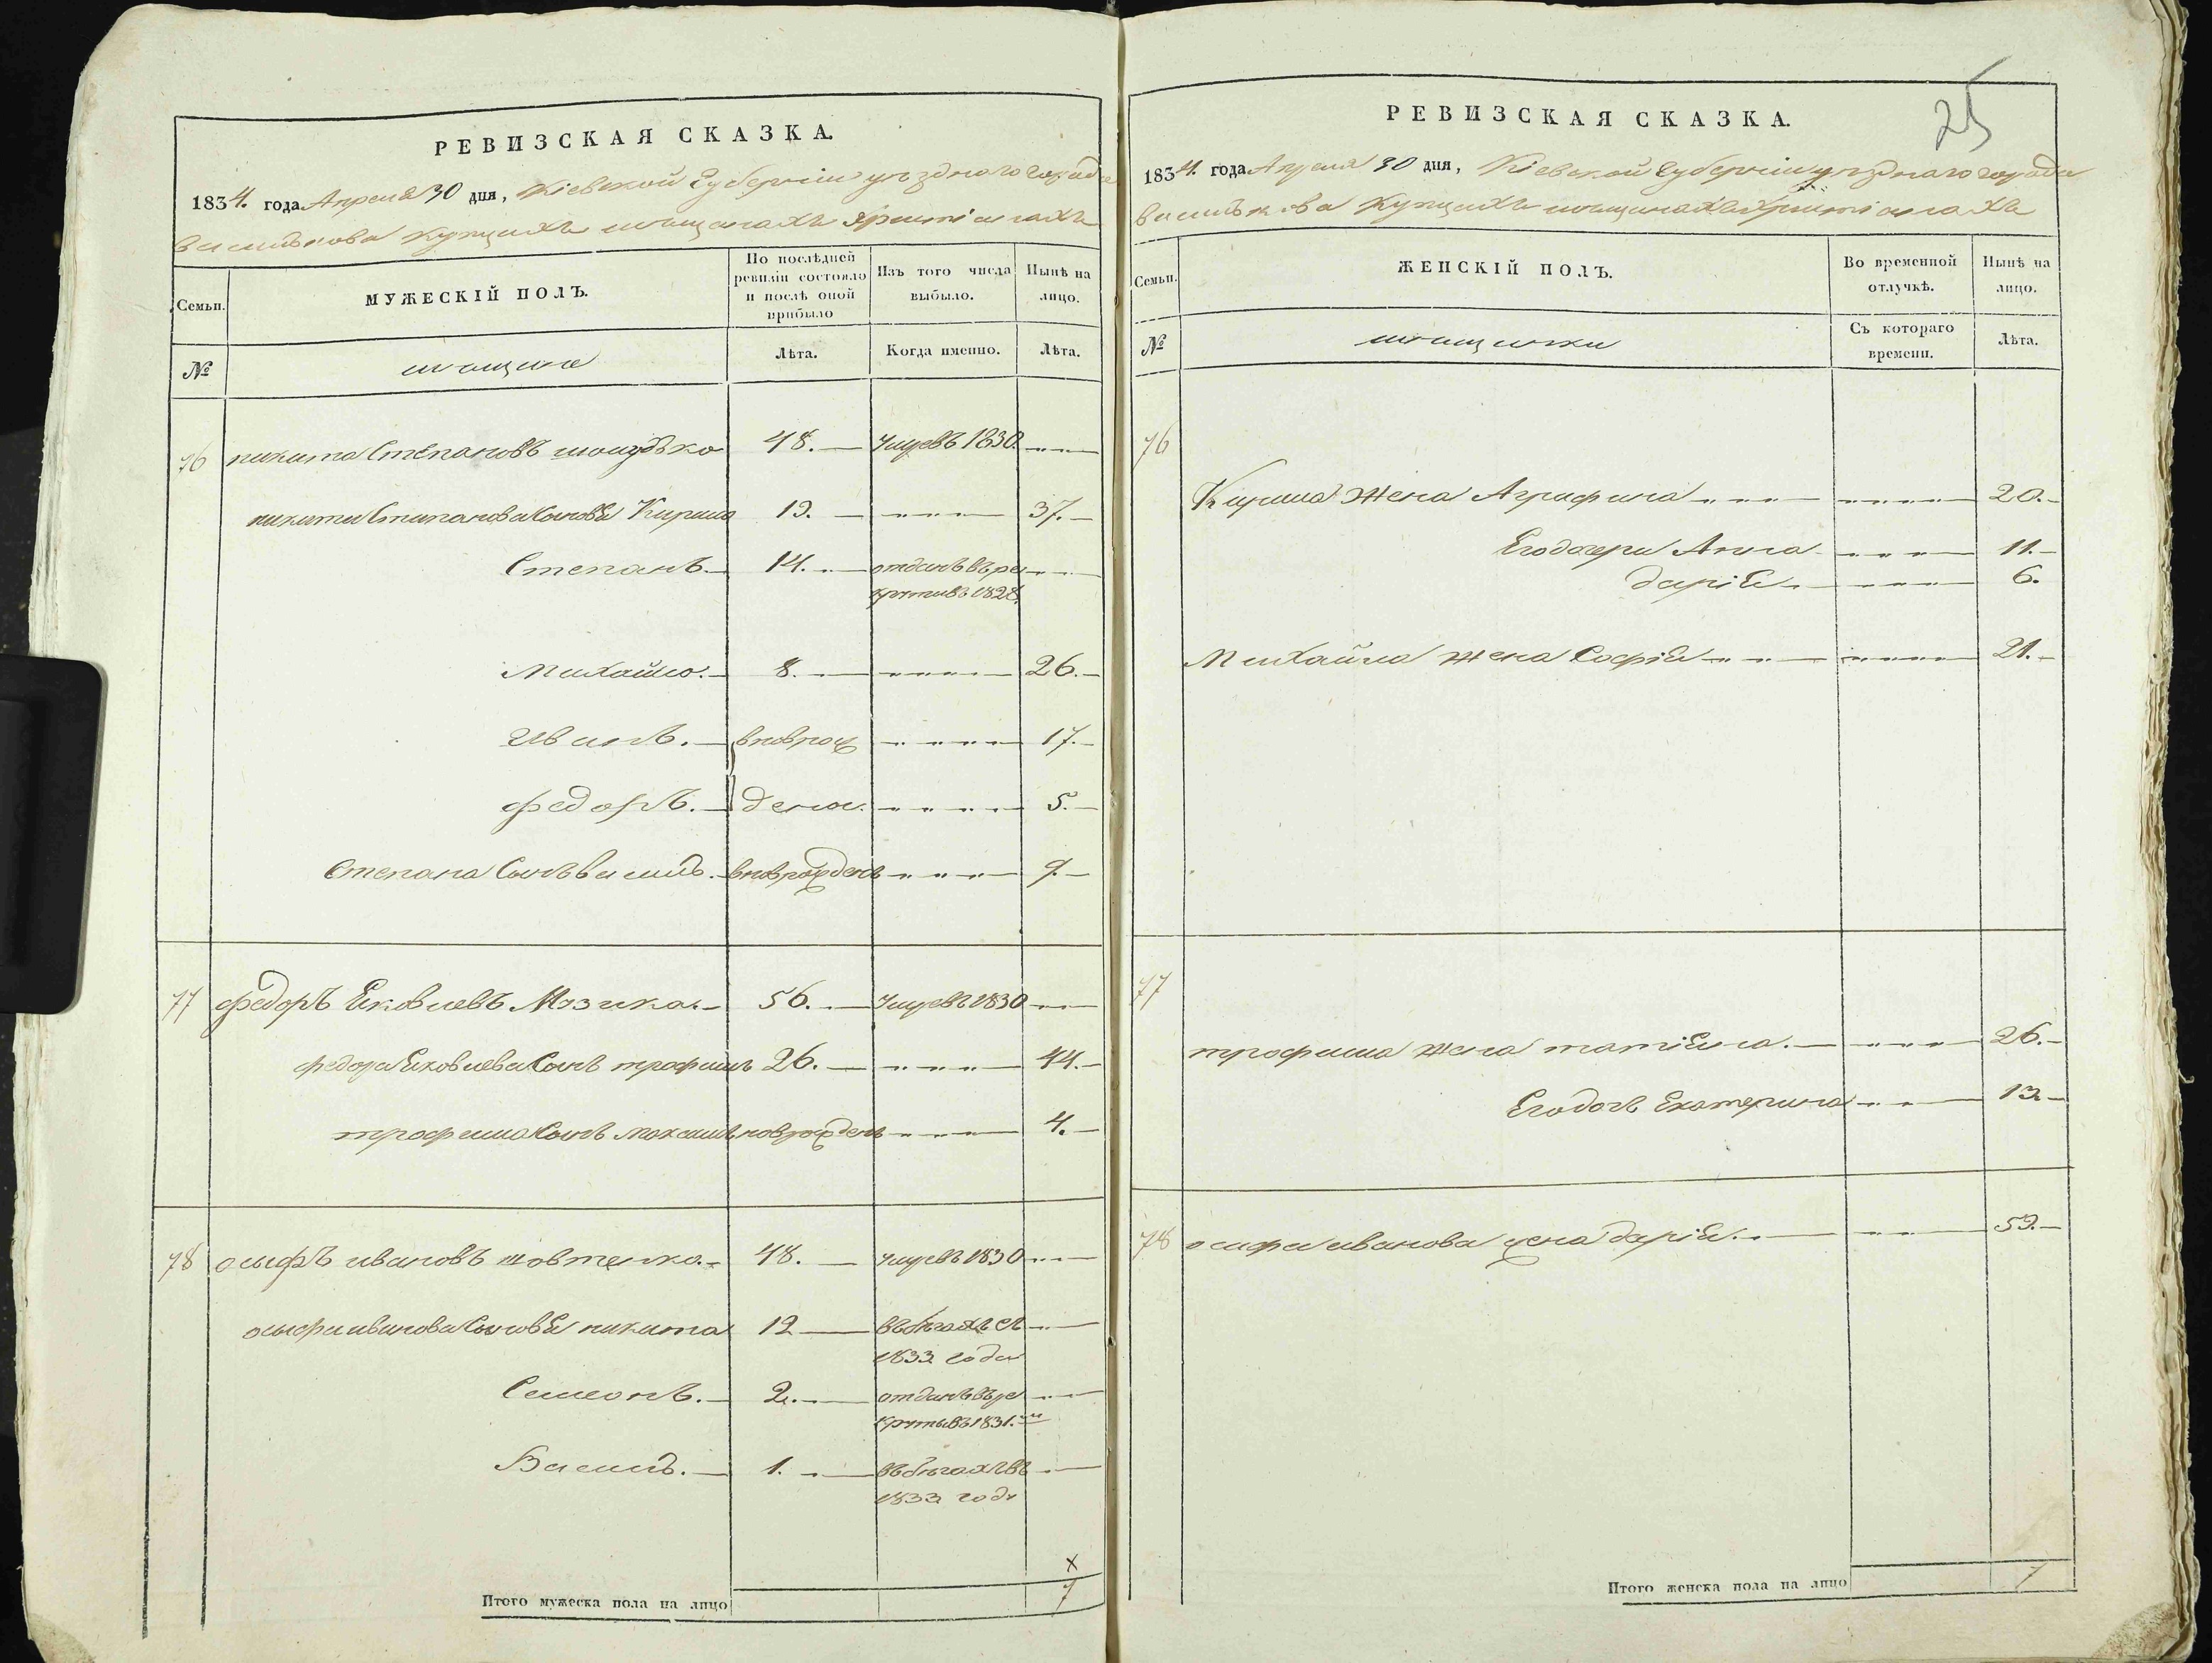 РЕВИЗСКАЯ СКАЗКА.
1834. года Апреля 30 дня, Кіевской Губерніи уѣзднаго города
василькова купцахъ мещанахъ христіанахъ
Семьи.
МУЖЕСКІЙ ПОЛЪ.
По послѣдней ревизіи состояло и послѣ оной прибыло
Изъ того числа выбыло.
Нынѣ на лицо.
№
мещане
Лѣта.
Когда именно.
Лѣта.
76 никита Степановъ 48. умеръ в 1830.
никиты Степанова Сыновья Кирило 19. 37.
Степанъ. 14. отданъ въ ре
круты въ 1828.
Михайло. 8. 26.
Иванъ. вноврож 17.
федоръ. дены. 5.
Степана Сынъ василь. вноврожденъ 9.
77 федоръ Яковлевъ Мазика. 56. умеръ в 1830
федора Яковлева Сынъ трофимъ 26. 44.
трофима Сынъ максимъ новрожденъ 4.
78 осифъ ивановъ жовтенко. 48. умеръ в 1830
осифа иванова Сыновья никита 12 въ бѣгахъ съ
1833 года
Семеонъ. 2. отданъ въ ре
круты въ 1831.
Василь. 1. въ бѣгахъ въ
1833 году
х
Итого мужеска пола на лицо 7
25
РЕВИЗСКАЯ СКАЗКА.
1834. года Апреля 30 дня, Кіевской Губерніи уѣзднаго города
василькова Купцахъ мещанахъ Христіанахъ
Семьи.
ЖЕНСКІЙ ПОЛЪ.
Во временной отлучкѣ.
Нынѣ на лицо.
№
мещанки
Съ котораго времени.
Лѣта.
76
Кирила жена Агрифина 20.
Его дочери Анна 11.
дарія 6.
Михайла жена Софія 21.
77
трофима жена татіяна. 26.
Его дочь Екатерина 13
78 осифа иванова жена дарія. 59.
Итого женска пола на лицо 7